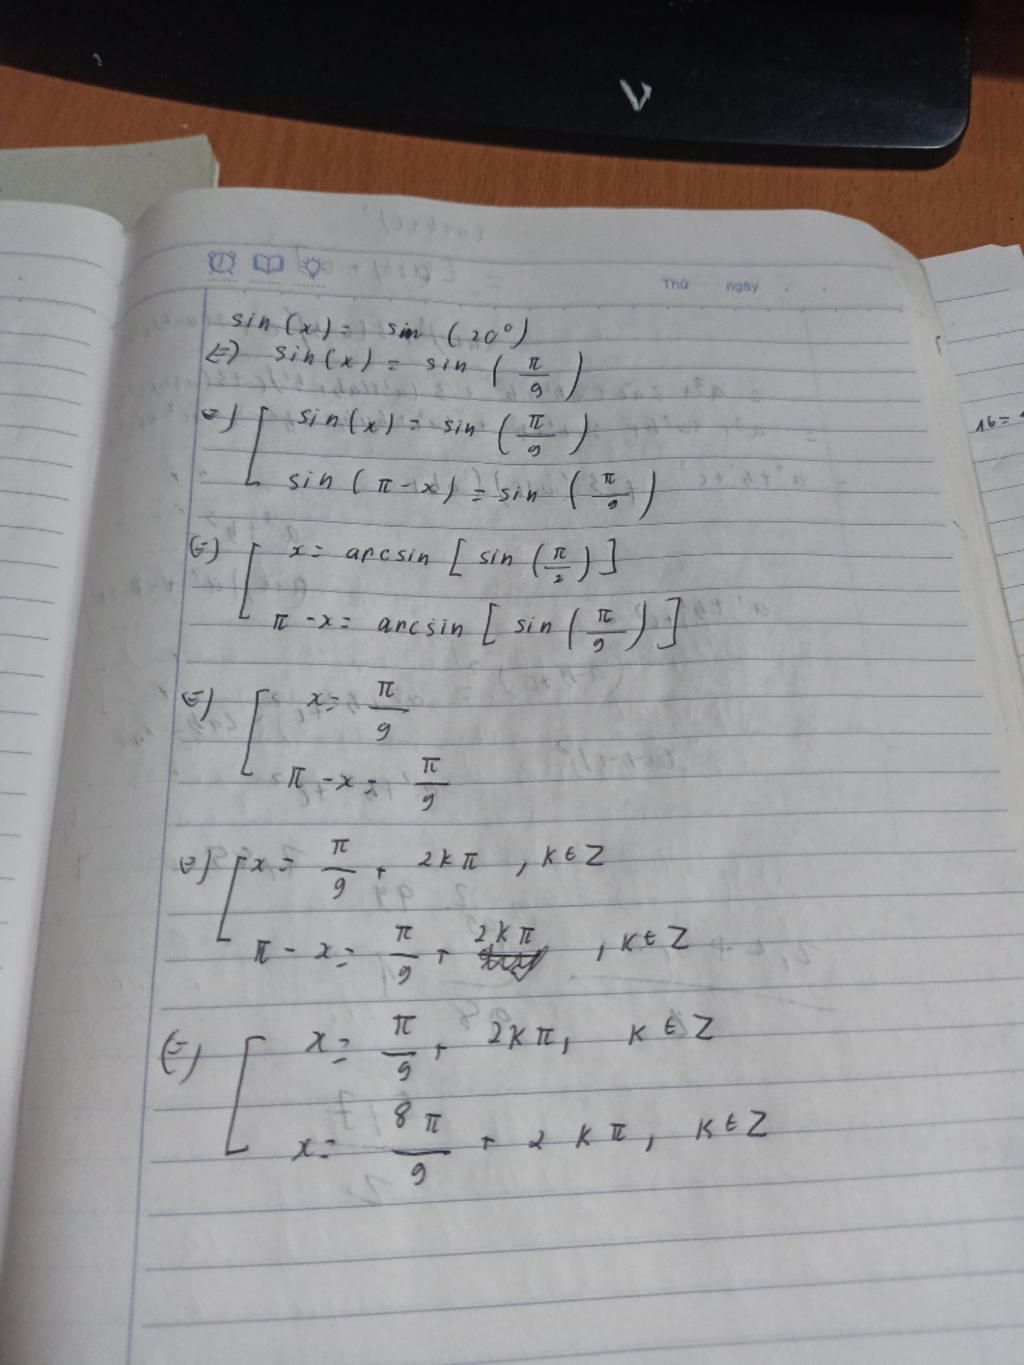 Thứ ngày
sin(x) = sin (20°)
⇔) sin(x) = sin (π/9)
⇔) [ sin(x) = sin (π/9)
sin (π-x) = sin (π/9)
⇔) [ x = arcsin [ sin (π/2) ]
π - x = arcsin [ sin (π/9) ]
⇔) [ x = π/9
π - x = π/9
⇔) [ x = π/9 + 2kπ , k ∈ Z
π - x = π/9 + 2kπ , k ∈ Z
⇔) [ x = π/9 + 2kπ, k ∈ Z
x = 8π/9 + 2kπ, k ∈ Z
16 =